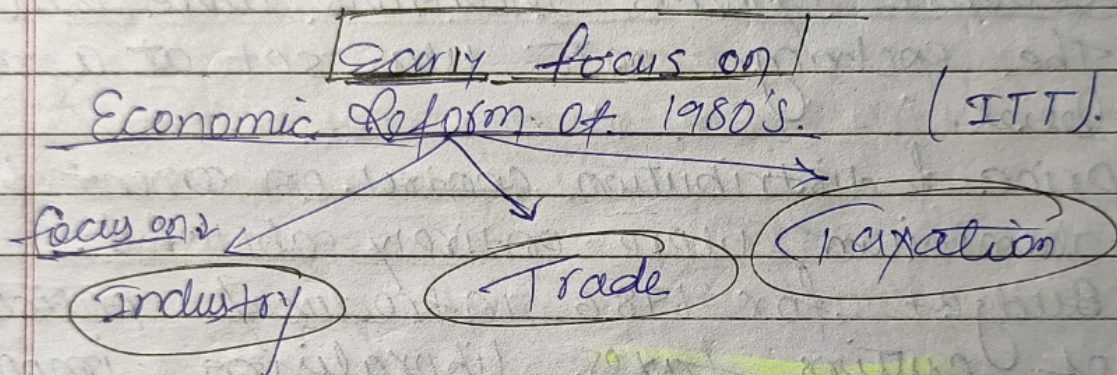 Early focus on
Economic Reform of 1980's. (ITT).
focus on
Industry Trade Taxation